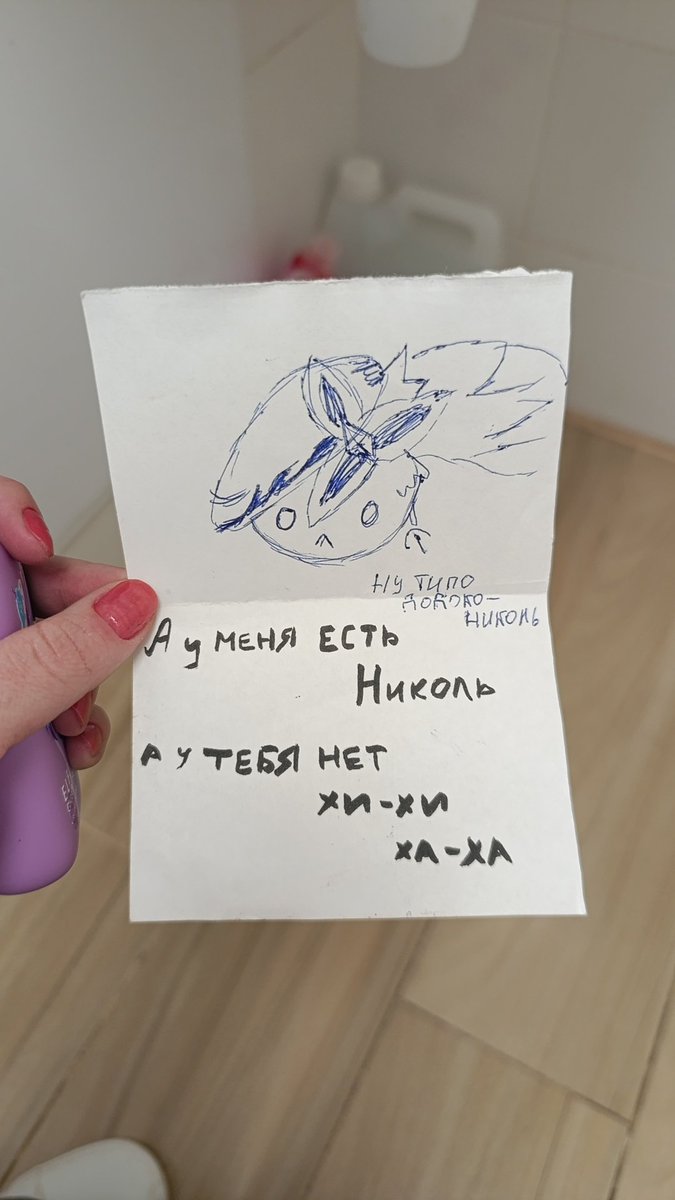 НУ ТИПО
ДОДОКО-
НИКОЛЬ
А У МЕНЯ ЕСТЬ
НИКОЛЬ
А У ТЕБЯ НЕТ
ХИ-ХИ
ХА-ХА